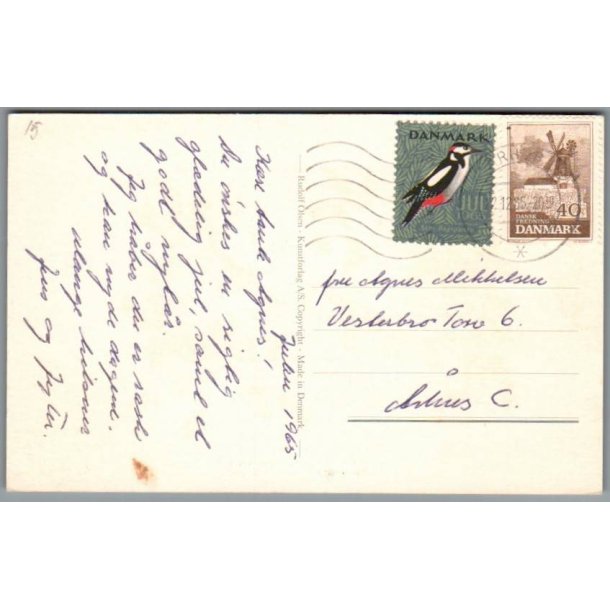 15
Julen 1965
Kære tante Agnes!
Du ønskes en rigtig
glædelig jul, samt et
godt nytår.
Jeg håber du er rask
og kan nyde dagene.
mange hilsner
Jens og
Rudolf Olsen - Kunstforlag A/S. Copyright - Made in Denmark
DANMARK
JUL
1965
DANSK
FREDNING
40
DANMARK
fru Agnes Mikkelsen
Vesterbro Torv 6.
Århus C.